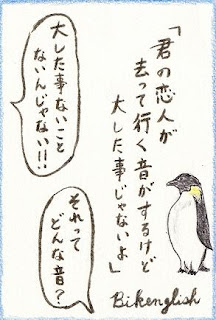 「君の恋人が
去って行く音がするけど
大した事じゃないよ」
大した事ないこと
ないんじゃない!!
それって
どんな音?
Bikenglish